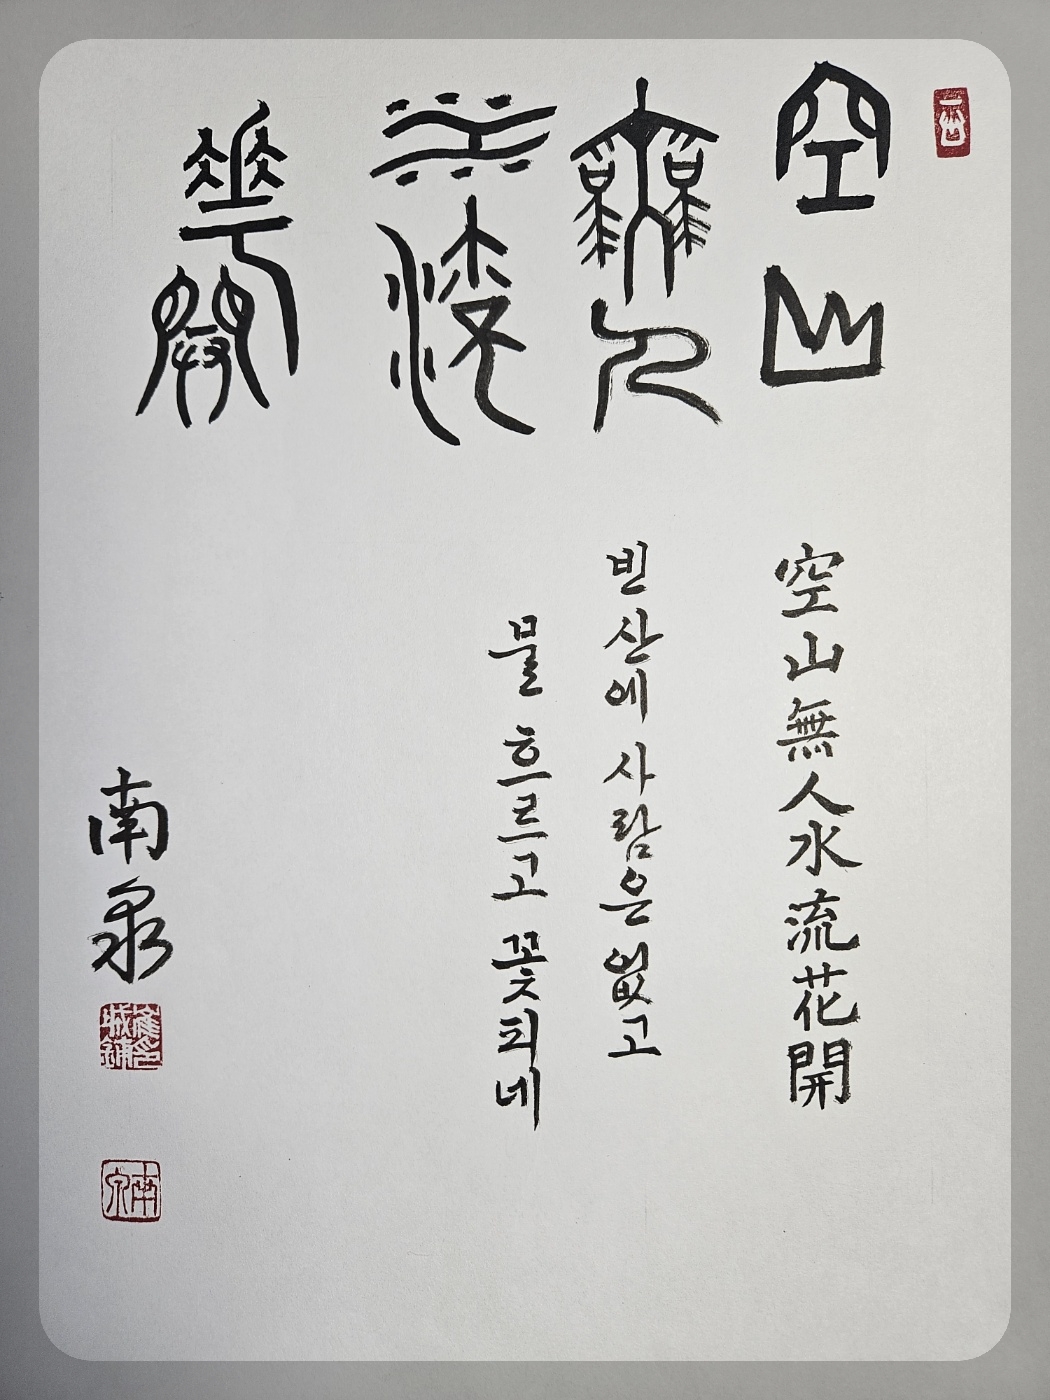 空山
無人
水流
花開
空山無人水流花開
빈 산에 사람은 없고
물 흐르고 꽃 피네
南泉
崔城鎬印
南泉